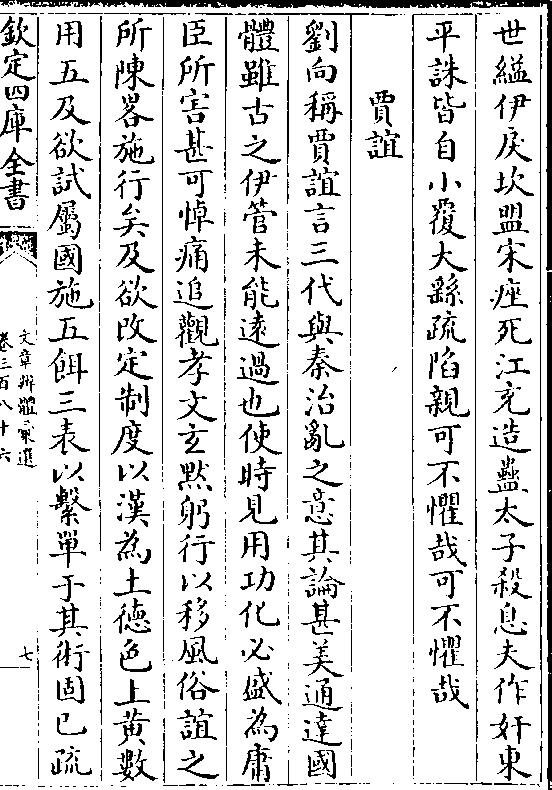 世縊伊戾坎盟宋痤死江充造蠱太子殺息夫作奸東
平誅皆自小覆大繇疏陷親可不懼哉可不懼哉
賈誼
劉向稱賈誼言三代與秦治亂之意其論甚美通達國
體雖古之伊管未能遠過也使時見用功化必盛為庸
臣所害甚可悼痛追觀孝文玄默躬行以移風俗誼之
所陳畧施行矣及欲改定制度以漢為土德色上黃數
用五及欲試屬國施五餌三表以繫單于其術固已疏
欽定四庫全書
文章辨體彙選
卷三百八十六
七